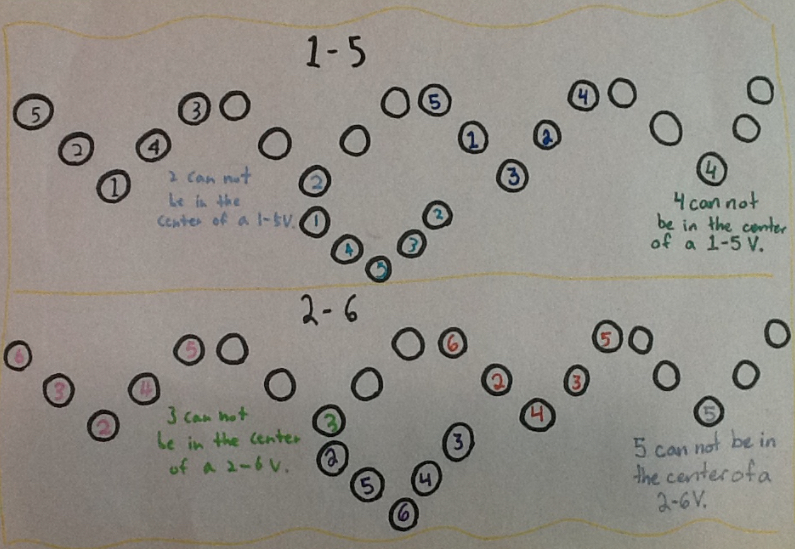 1-5
5 2 1 4 3
2 can not
be in the
center of a 1-5V.
2
5 1 3 2 4
4
4 can not
be in the center
of a 1-5 V.
1 4 5 3 2
2-6
6 3 2 4 5
3 can not
be in the center
of a 2-6 V.
3
6 2 4 3 5
5
5 can not be in
the center of a
2-6V.
2 5 6 4 3